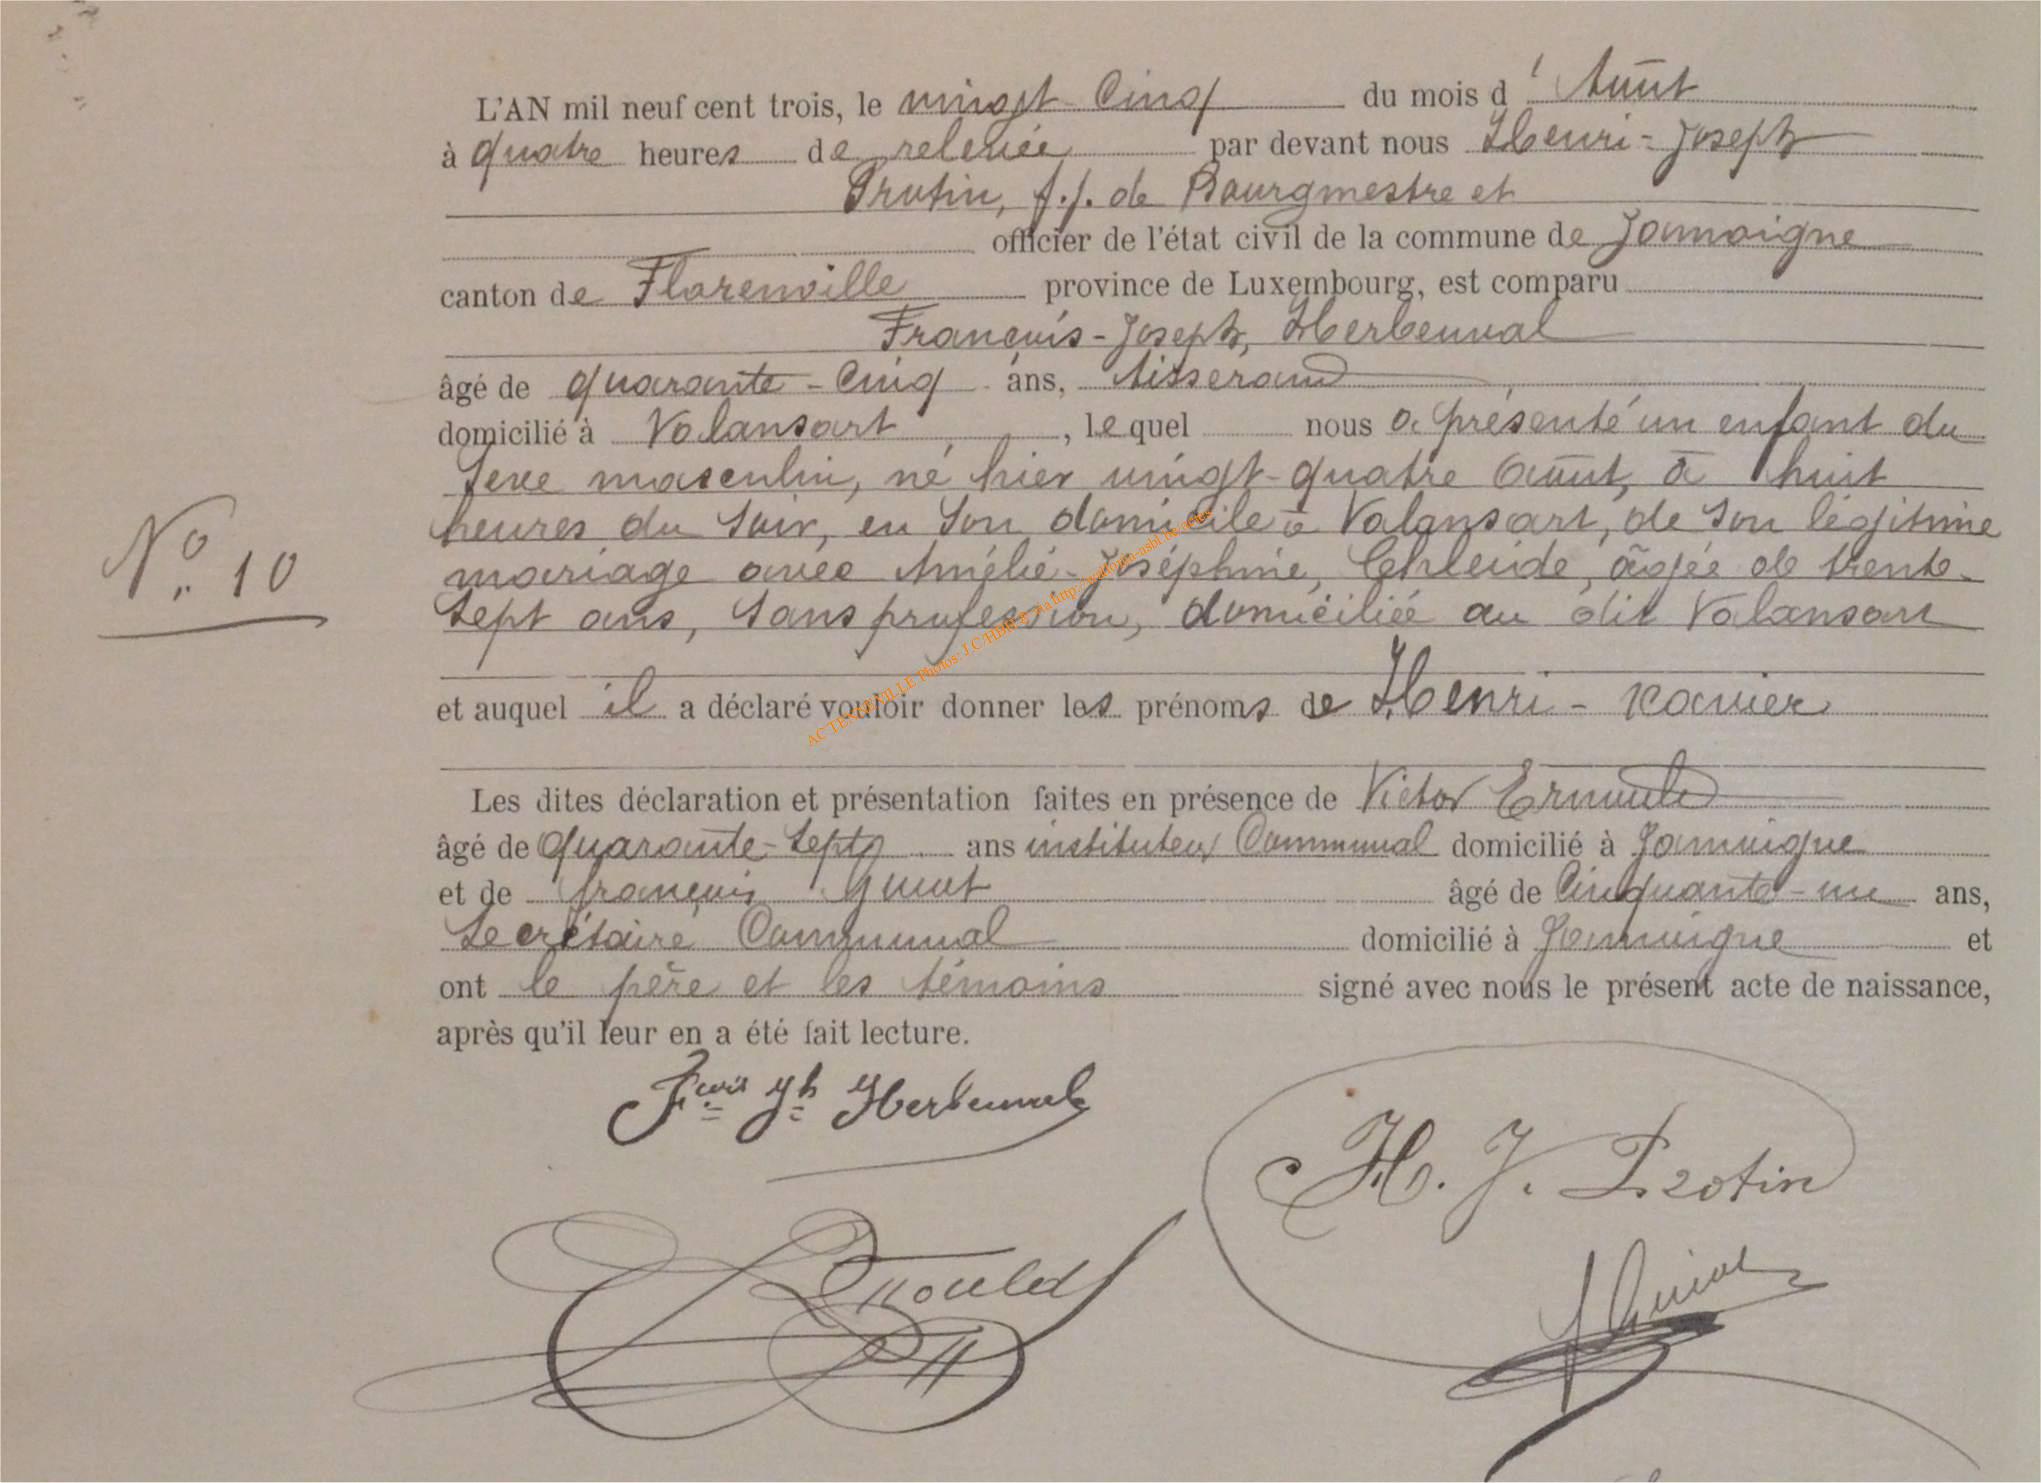 L'AN mil neuf cent trois, le vingt-cinq du mois d'Août
à quatre heures de relevée par devant nous Henri-Joseph
Protin, f.f. de Bourgmestre et
officier de l'état civil de la commune de Jamoigne
canton de Florenville province de Luxembourg, est comparu
François-Joseph, Herbeuval
âgé de quarante-cinq ans, tisserand
domicilié à Valansart, lequel nous a présenté un enfant du
sexe masculin, né hier vingt-quatre août, à huit
heures du soir, en son domicile à Valansart, de son légitime
mariage avec Amélie-Joséphine, âgée de trente-
sept ans, sans profession, domiciliée au dit Valansart
N° 10
et auquel il a déclaré vouloir donner les prénoms de Henri-Xavier
Les dites déclaration et présentation faites en présence de Victor
âgé de quarante-sept ans instituteur Communal domicilié à Jamoigne
et de françois âgé de Cinquante-un ans,
Secrétaire Communal domicilié à Jamoigne et
ont le père et les témoins signé avec nous le présent acte de naissance,
après qu'il leur en a été fait lecture.
Fçois Jh Herbeuval
H. J. Protin